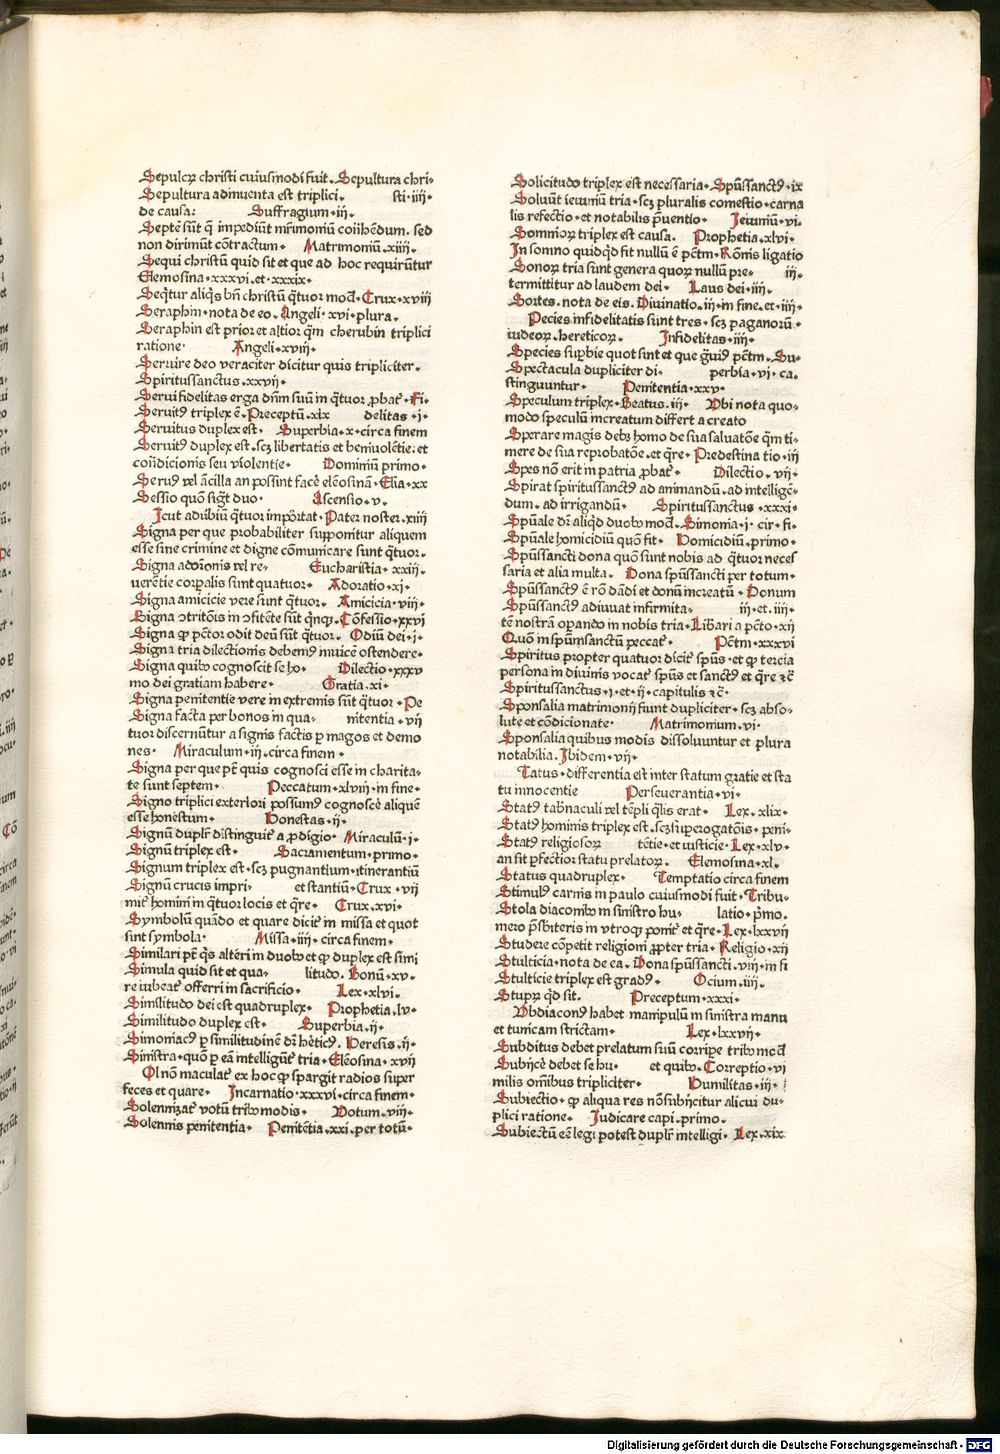 Sepulcꝝ christi cuiusmodi fuit. Sepultura chri-
Sepultura adinuenta est triplici. sti.iiij.
de causa: Suffragium.iij.
Septē sūt q̄ impediūt mr̄imoniū cōiūhēdum. sed
non dirimūt cōtractum. Matrimoniū.xiiij.
Sequi christū quid sit et que ad hoc requirūtur
Elemosina.xxxvi.et.xxxix.
Seq̄tur aliq̄s bn̄ christū q̄tuor mod. Crux.xviij
Seraphin.nota de eo. Angeli.xvi.plura.
Seraphin est prior et altior q̄m cherubin triplici
ratione. Angeli.xviij.
Seruire deo veraciter dicitur quis tripliciter.
Spiritussanctus.xxvij.
Serui fidelitas erga dn̄m suū in q̄tuor ꝓbat̄. Fi-
Seruitꝰ triplex ē. Preceptū.xix delitas.i.
Seruitus duplex est. Superbia.x.circa finem
Seruitꝰ duplex est.scꝫ libertatis et beniuolētie: et
condicionis seu violentie. Dominiū primo.
Seruꝰ vel ācilla an possint facē elēosinā. Elīa.xx
Sessio quō sigt̄ duo. Ascensio.v.
Icut aduētū q̄tuor imp̄ortat. Pater noster.xiiij
Signa per que probabiliter supponitur aliquem
esse sine crimine et digne cōmunicare sunt q̄tuor.
Signa adorōnis vel re- Eucharistia.xxiij.
uerētie corꝑalis sunt quatuor. Adoratio.xi.
Signa amicicie vere sunt q̄tuor. Amicicia.viij.
Signa ↄtritōis in ↄfitēte sūt q̄nqꝫ. Cōfessio.xxvi
Signa ꝙ pctōr odit deū sūt q̄tuor. Odiū dei.i.
Signa tria dilectionis debemꝰ inuicē ostendere.
Signa quibꝰ cognoscit̄ se ho. Dilectio.xxxv
mo dei gratiam habere. Gratia.xi.
Signa penitentie vere in extremis sūt q̄tuor. Pe
Signa facta per bonos in qua- nitentia.vij
tuor discernūtur a signis factis ꝑ magos et demo
nes. Miraculum.iij.circa finem.
Signa per que pt̄ quis cognosci esse in charita-
te sunt septem. Peccatum.xlviij.in fine.
Signo triplici exteriori possumꝰ cognoscē aliquē
esse honestum. Honestas.ij.
Signū duplr̄ distinguit̄ a ꝓdigio. Miraculū.i.
Signū triplex est. Sacramentum.primo.
Signum triplex est.scꝫ pugnantium.itinerantiū
Signū crucis impri- et stantiū. Crux.vij
mit̄ homini in q̄tuor locis et q̄re. Crux.xvi.
Symbolū quādo et quare dicit̄ in missa et quot
sint symbola. Missa.iiij.circa finem.
Similari pt̄ q̄s alteri in duobꝰ et ꝙ duplex est simi
Simula quid sit et qua- litudo. Bonū.xv.
re iubeat̄ offerri in sacrificio. Lex.xlvi.
Similitudo dei est quadruplex. Prophetia.lv.
Similitudo duplex est. Superbia.ij.
Simoniacꝰ ꝑ similitudinē dr̄ hēticꝰ. Heresis.ij.
Sinistra.quō ꝑ eā intelligūt̄ tria. Elēosina.xvij
Ol nō maculat̄ ex hoc ꝙ spargit radios super
feces et quare. Incarnatio.xxxvi.circa finem.
Solennizat̄ votū tribꝰ modis. Votum.viij.
Solennis penitentia. Penitētia.xxi.per totū.
Solicitudo triplex est necessaria. Spūssanctꝰ.ix
Soluūt ieiuniū tria.scꝫ pluralis comestio.carna
lis refectio.et notabilis p̄uentio. Ieiuniū.vi.
Somnioꝝ triplex est causa. Prophetia.xlvi.
In somno quidqd̄ fit nullū ē pctm̄. Rōnis ligatio
Sonoꝝ tria sunt genera quoꝝ nullū pre- iij.
termittitur ad laudem dei. Laus dei.iiij.
Sortes.nota de eis. Diuinatio.iij in fine.et.iiij.
Pecies infidelitatis sunt tres.scꝫ paganorū.
iudeoꝝ.hereticoꝝ. Infidelitas.iiij.
Species supbie quot sint et que gͣuiꝰ pctm̄. Su-
Spectacula dupliciter di- perbia.vi.ca.
stinguuntur. Penitentia.xxv.
Speculum triplex. Beatus.iij. Vbi nota quo-
modo speculū increatum differt a creato
Sperare magis debꝫ homo de sua saluatōe q̄m ti-
mere de sua reprobatōe.et q̄re. Predestinatio.iij
Spes nō erit in patria ꝓbat̄. Dilectio.vij.
Spirat spiritussanctꝰ ad animandū.ad intelligē-
dum.ad irrigandū. Spiritussanctus.xxxi.
Spūale dr̄ aliqd̄ duobꝰ mod. Simonia.i.cir.fi.
Spūale homicidiū quō fit. Homicidiū.primo.
Spūssancti dona quō sunt nobis ad q̄tuor neces
saria et alia multa. Dona spūssancti per totum.
Spūssanctꝰ ē rō dādi et donū increatū. Donum
Spūssanctꝰ adiuuat infirmita- iij.et.iiij.
tē nostrā oꝑando in nobis tria. Libari a pctō.xij
Quō in spūmsanctū peccat̄. Pctm̄.xxxvi
Spiritus propter quatuor dicit̄ spūs.et ꝙ tercia
persona in diuinis vocat̄ spūs et sanctꝰ et q̄re ⁊c̄
Spiritussanctus.i.et.ij.capitulis ⁊c̄.
Sponsalia matrimonij fiunt dupliciter.scꝫ abso-
lute et cōdicionate. Matrimonium.vi.
Sponsalia quibus modis dissoluuntur et plura
notabilia. Ibidem.vij.
Tatus.differentia est inter statum gratie et sta
tu innocentie Perseuerantia.vi.
Statꝰ tabnaculi vel tēpli q̄lis erat. Lex.xlix.
Statꝰ hominis triplex est.scꝫ suꝑerogatōis.peni-
Statꝰ religiosoꝝ tētie.et iusticie. Lex.xlv.
an sit ꝑfectior statu prelatoꝝ. Elemosina.xl.
Status quadruplex. Temptatio circa finem
Stimulꝰ carnis in paulo cuiusmodi fuit. Tribu-
Stola diaconibꝰ in sinistro hu- latio.pͥmo.
mero p̄sbiteris in vtroqꝫ ponit̄ et q̄re. Lex.lxxvij
Studere cōpetit religioni ꝓpter tria. Religio.xij
Stulticia.nota de ea. Dona spūssancti.viij.in fi
Stulticie triplex est gradꝰ. Ocium.iiij.
Stupꝝ qd̄ sit. Preceptum.xxxi.
Vbdiaconꝰ habet manipulū in sinistra manu
et tunicam strictam. Lex.lxxvij.
Subditus debet prelatum suū corripe tribꝰ mod
Subijcē debet se hu- et quibꝰ. Correptio.vi
milis om̄ibus tripliciter. Humilitas.iij.
Subiectio.ꝙ aliqua res nō subijcitur alicui du-
plici ratione. Iudicare capi.primo.
Subiectū eē legi potest duplr̄ intelligi. Lex.xix.
Digitalisierung gefördert durch die Deutsche Forschungsgemeinschaft - DFG